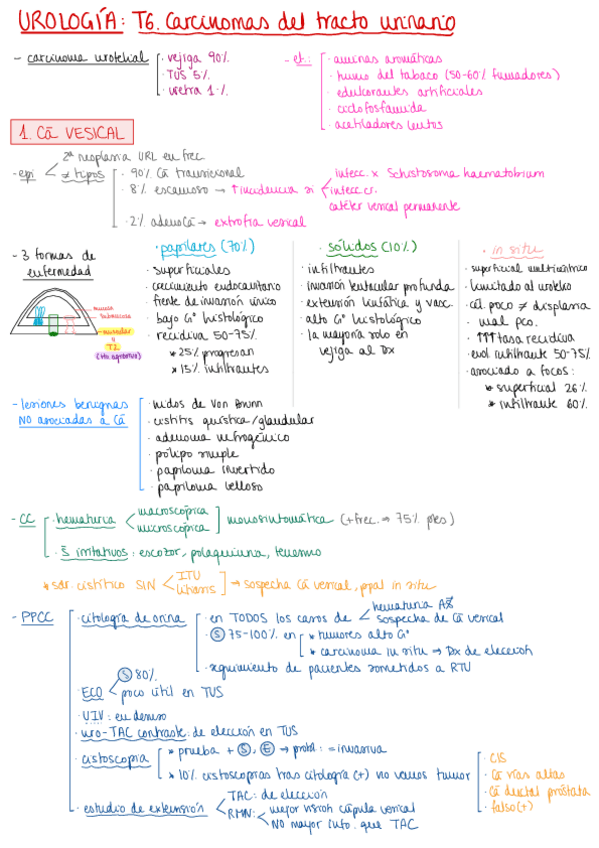 UROLOGÍA: T6. Carcinomas del tracto urinario
- carcinoma urotelial
· vejiga 90%
· TUS 5%
· uretra 1%
- et.:
· aminas aromáticas
· humo del tabaco (50-60% fumadores)
· edulcorantes artificiales
· ciclofosfamida
· acetiladores lentos
1. Cā VESICAL
- epi
2ª neoplasia URL en frec
≠ tipos
· 90% Cā transicional
· 8% escamoso → ↑incidencia si
infecc. x Schistosoma haematobium
infecc cr.
catéter vesical permanente
· 2% adenoCā → extrofia vesical
- 3 formas de enfermedad
mucosa
submucosa
muscular
T2
· papilares (70%)
· superficiales
· crecimiento endocavitario
· frente de invasión único
· bajo Gº histológico
· recidiva 50-75%
* 25% progresan
* 15% infiltrantes
· sólidos (10%)
· infiltrantes
· invasión tentacular profunda
· extensión linfática y vasc.
· alto Gº histológico
· la mayoría solo en
vejiga al Dx
· in situ
· superficial multicéntrico
· limitado al urotelio
· cél. poco ≠ displasia
· mal pco.
· ↑↑↑ tasa recidiva
· evol infiltrante 50-75%
· asociado a focos:
* superficial 26%
* infiltrante 60%
- lesiones benignas
NO asociadas a Cā
· nidos de Von Brunn
· cistitis quística/glandular
· adenoma nefrogénico
· pólipo simple
· papiloma invertido
· papiloma velloso
- CC
· hematuria
macroscópica
microscópica
monosintomática (+frec. → 75% ptes)
· S irritativos: escozor, polaquiuria, tenesmo
* sdr. cistítico SIN
ITU
litiasis
→ sospecha Cā vesical, ppal in situ
- PPCC
· citología de orina
· en TODOS los casos de
hematuria
sospecha de Cā vesical
· S 75-100% en
* tumores alto Gº
* carcinoma in situ → Dx de elección
· seguimiento de pacientes sometidos a RTU
· ECO
S 80%
poco útil en TUS
· UIV: en desuso
· uro-TAC contraste: de elección en TUS
· cistoscopia
* prueba + S, E → probl: = invasiva
* 10% cistoscopias tras citología (+) no vemos tumor
· CIS
· Cā vías altas
· Cā ductal próstata
· falso (+)
· estudio de extensión
TAC: de elección
RMN:
mejor visión cúpula vesical
NO mayor info. que TAC